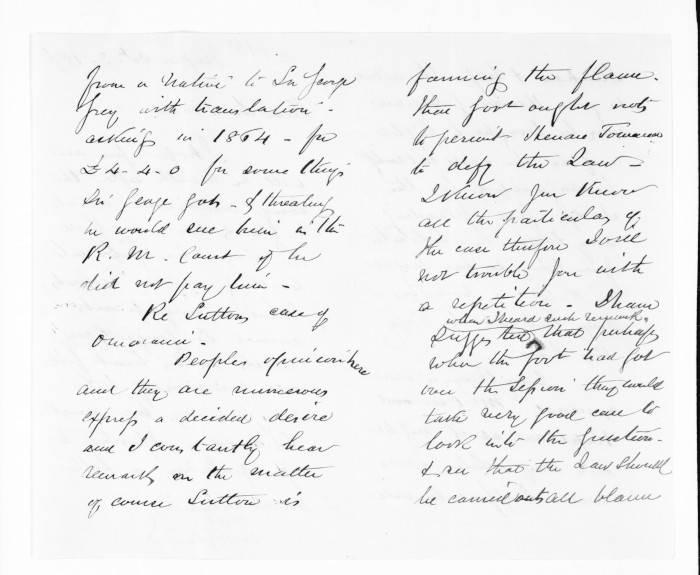 from a Native to Sir George
Grey with translation -
asking in 1864 - for
£4-4-0 for some things
Sir George got - & threateng
he would sue him in the
R. M. Court if he
did not pay him -
Re Suttons case of
Omaranui -
Peoples opinions here
and they are numerous
express a decided desire
and I constantly hear
remarks on the matter
of course Sutton is
fanning the flame.
The Govt ought not
to permit Henare Tomoana
to defy the Law -
I know you know
all the particulars of
the case therefore I will
not trouble you with
a repetition - I have
when I heard such remarks
suggested that perhaps
when the Govt had got
over the Session they would
take very good care to
look into the question -
& see that the Law should
be carried out all blame